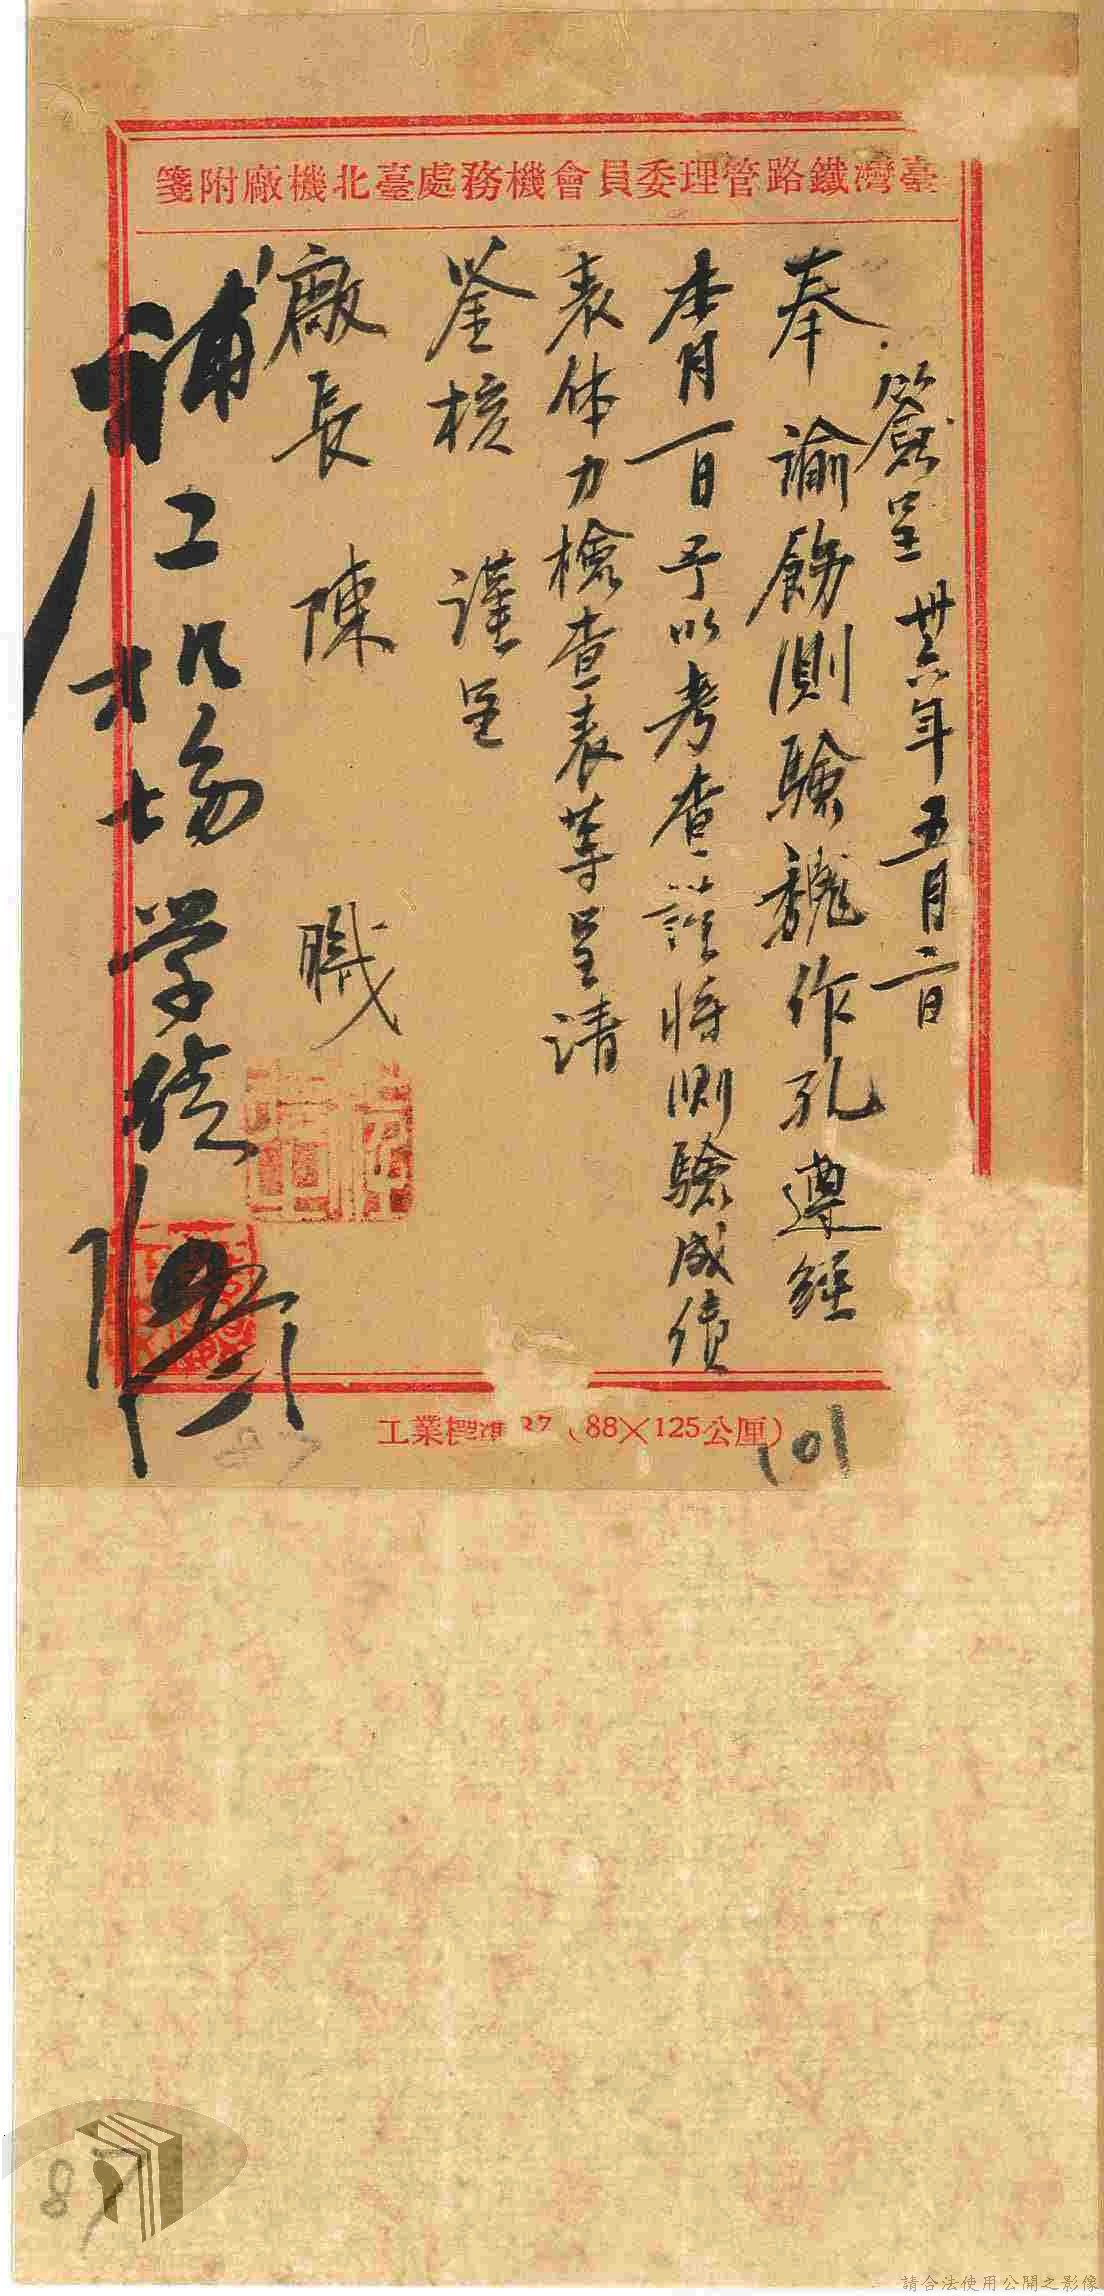 臺灣鐵路管理委員會機務處臺北機廠附箋
簽呈 卅六年五月二日
奉 諭飭測驗魏作孔遵經
本月一日予以考查謹將測驗成績
表体力檢查表等呈請
鉴核 謹呈
廠長 陳 職
補工作場学徒
工業標準 27 (88×125公厘)
101
87
請合法使用公開之影像